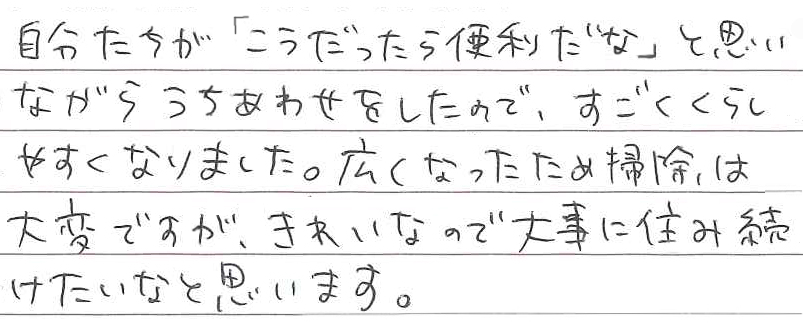 自分たちが「こうだったら便利だな」と思い
ながらうちあわせをしたので、すごくくらし
やすくなりました。広くなったため掃除は
大変ですが、きれいなので大事に住み続
けたいなと思います。